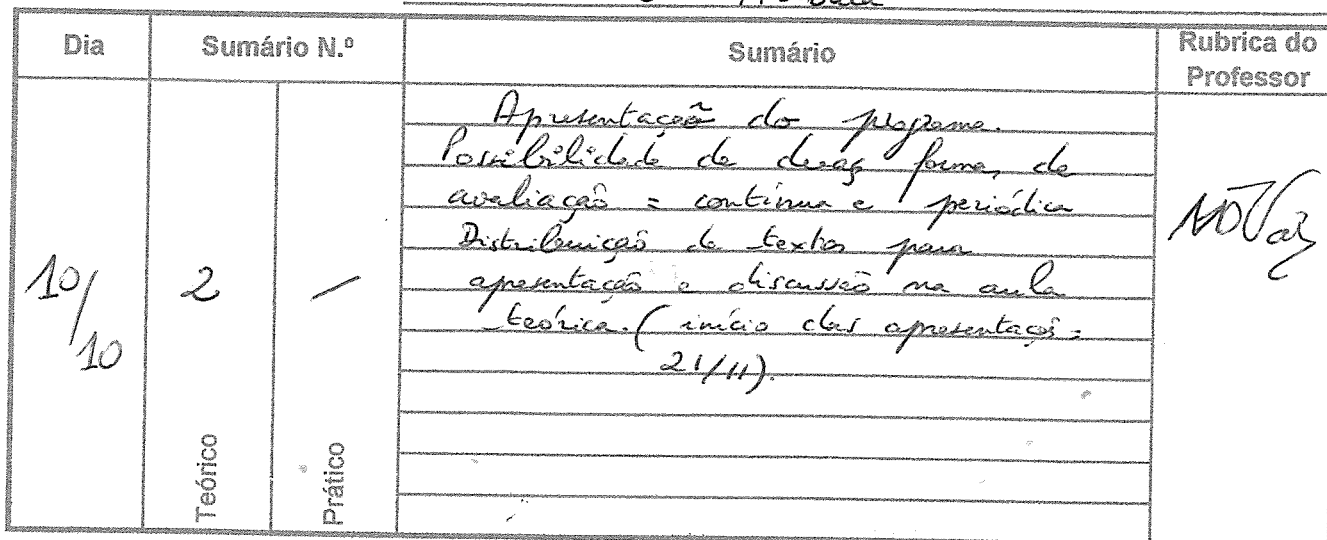 Dia
Sumário N.º
Sumário
Rubrica do
Professor
10/10
2
/
Teórico
Prático
Apresentação do programa.
Possibilidade de duas formas de
avaliação = contínua e periódica
Distribuição de textos para
apresentação e discussão na aula
teórica. (início das apresentaçõ=
21/11).